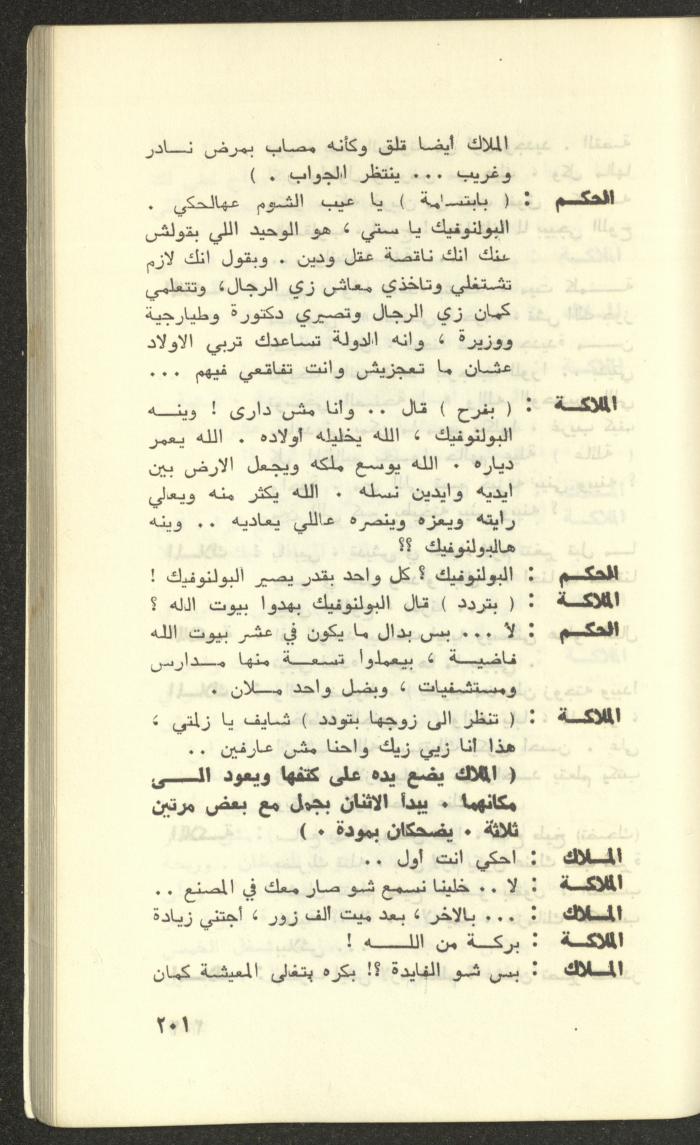 الملاك أيضا قلق وكأنه مصاب بمرض نـــادر
وغريب ... ينتظر الجواب . )
الحكـــم : ( بابتسامة ) يا عيب الشوم عهالحكي .
البولنوفيك يا ستي ، هو الوحيد اللي بقولش
عنك انك ناقصة عقل ودين . وبقول انك لازم
تشتغلي وتاخذي معاش زي الرجال، وتتعلمي
كمان زي الرجال وتصيري دكتورة وطيارجية
ووزيرة ، وانه الدولة تساعدك تربي الاولاد
عشان ما تعجزيش وانت تفاقعي فيهم ...
الملاكـــة : ( بفرح ) قال .. وأنا مش دارى ! وينـــه
البولنوفيك ، الله يخليله أولاده . الله يعمر
دياره . الله يوسع ملكه ويجعل الارض بين
ايديه وايدين نسله . الله يكثر منه ويعلي
رايته ويعزه وينصره عاللي يعاديه .. وينه
هالبولنوفيك ؟؟
الحكـــم : البولنوفيك ؟ كل واحد بقدر يصير البولنوفيك !
الملاكـــة : ( بتردد ) قال البولنوفيك بهدوا بيوت الله ؟
الحكـــم : لأ ... بس بدال ما يكون في عشر بيوت الله
فاضيـــة ، بيعملوا تسعـــة منها مـــدارس
ومستشفيات ، وبضل واحد مـــلان .
الملاكـــة : ( تنظر الى زوجها بتودد ) شايف يا زلمتي ،
هذا أنا زيي زيك واحنا مش عارفين ..
( الملاك يضع يده على كتفها ويعود الـــى
مكانهما . يبدأ الاثنان بجمل مع بعض مرتين
ثلاثة . يضحكان بمودة . )
المـــلاك : احكي انت أول ..
الملاكـــة : لا .. خلينا نسمع شو صار معك في المصنع ..
المـــلاك : ... بالاخر ، بعد ميت ألف زور ، أجتني زيادة
الملاكـــة : بركـــة من اللـــــه !
المـــلاك : بس شو الفايدة ؟! بكره بتغلى المعيشة كمان
٢٠١